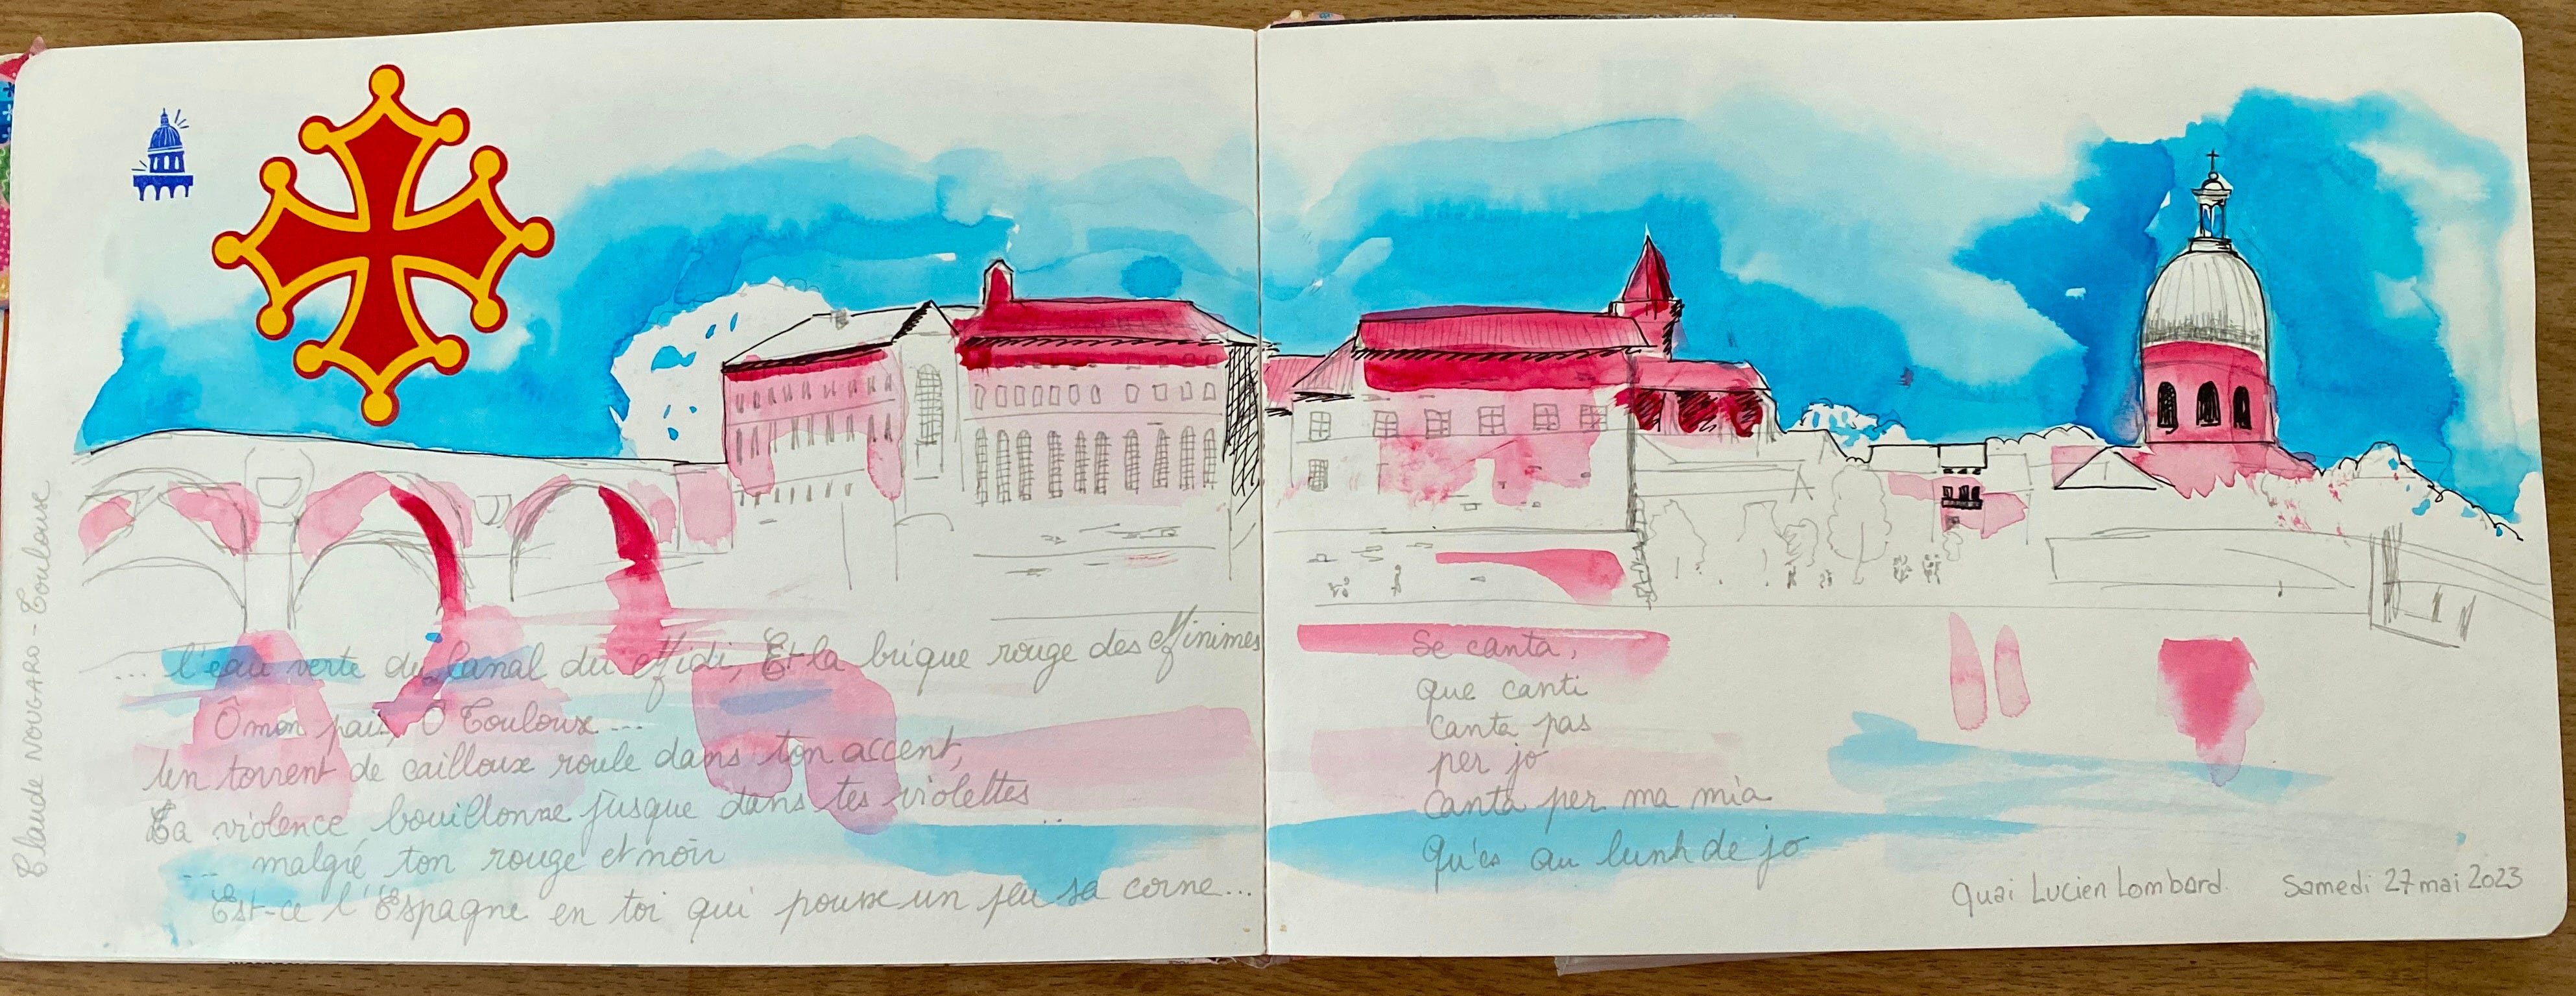 Claude NOUGARO - Toulouse
... l'eau verte du Canal du Midi, Et la brique rouge des Minimes
Ô mon païs, Ô Toulouse ...
Un torrent de cailloux roule dans ton accent,
Ta violence bouillonne jusque dans tes violettes
... malgré ton rouge et noir
Est-ce l'Espagne en toi qui pousse un peu sa corne...
Se canta,
que canti
canta pas
per jo
canta per ma mia
Qu'es au lunh de jo
Quai Lucien Lombard. Samedi 27 mai 2023